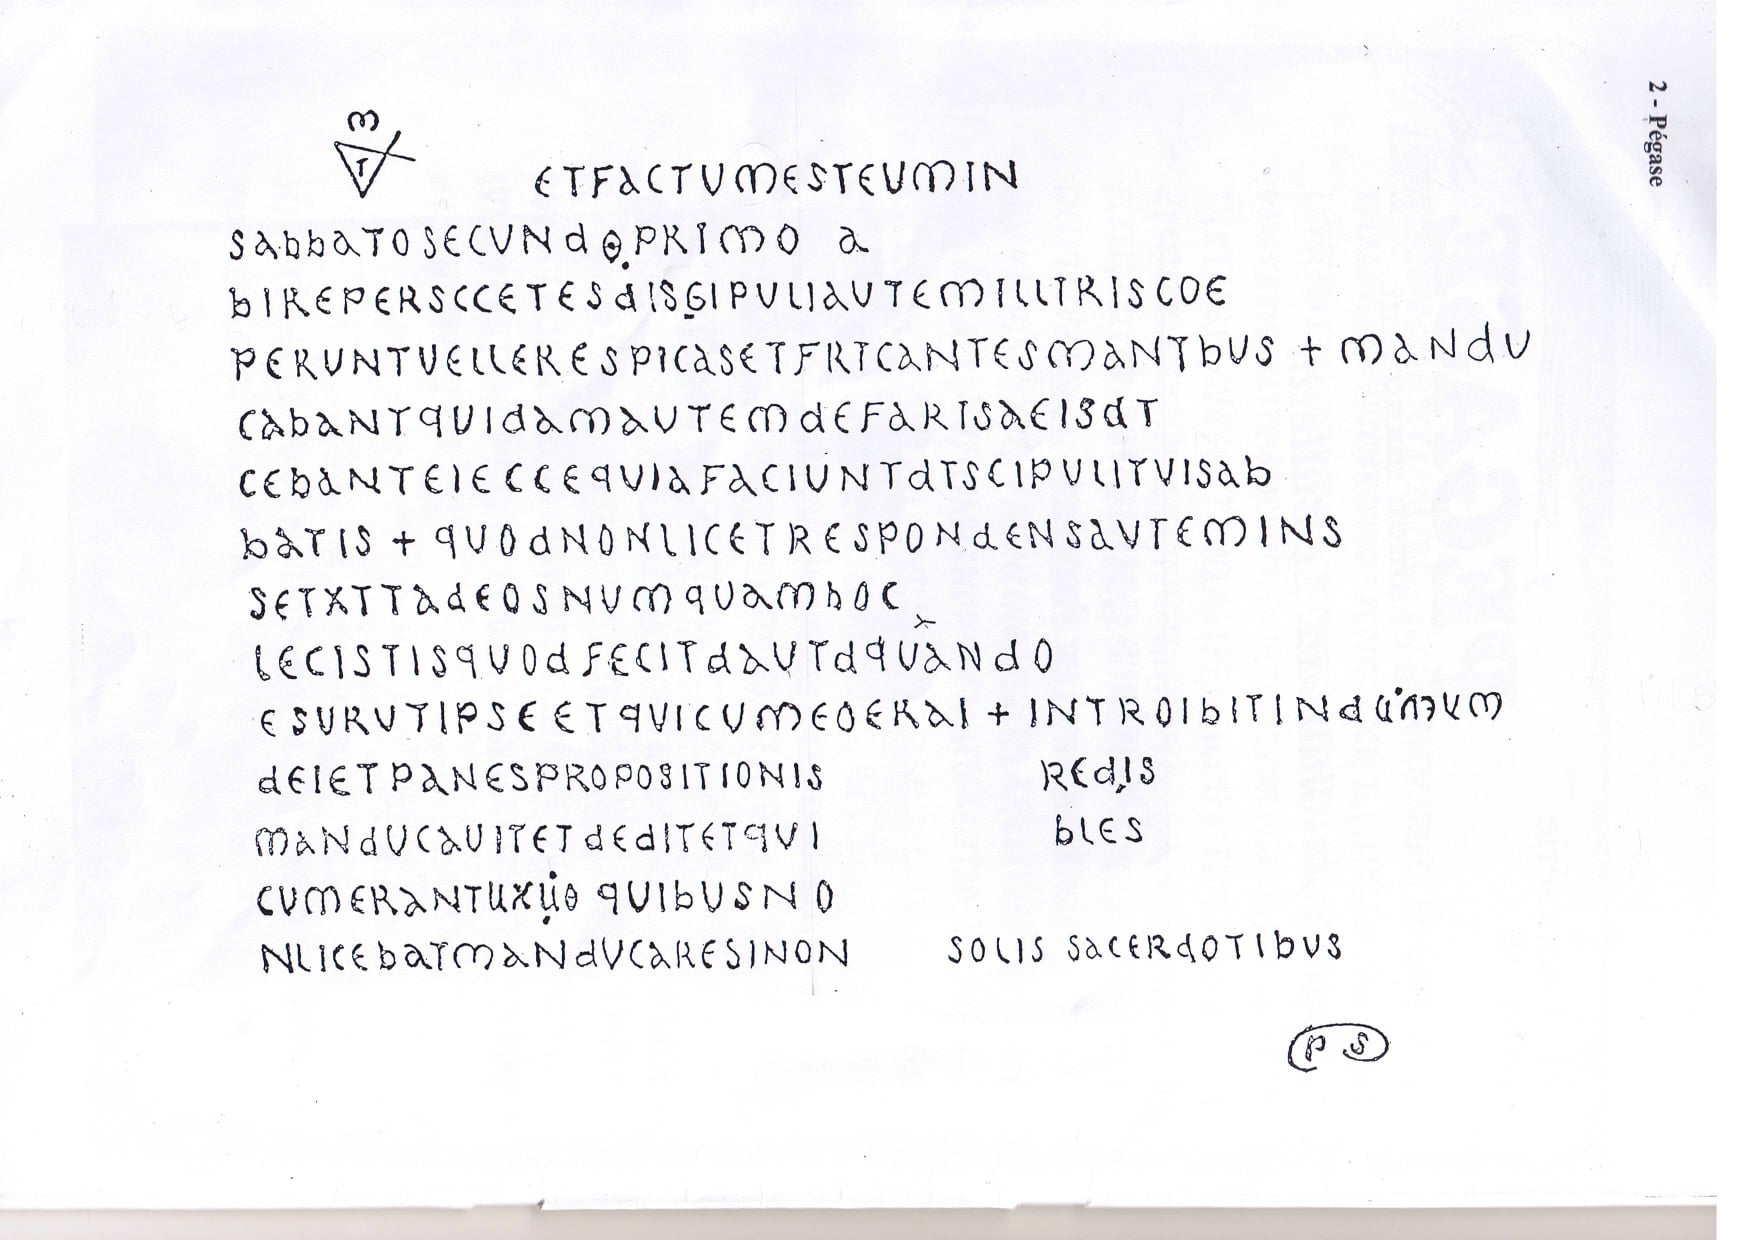 M
T
ETFACTUMESTEUMIN
SAbbATOSECUNdOPRIMO A
bIREPERSCCETESdISGIPULIAUTEMILLTRISCOE
PERUNTUELLERESPICASETFRTCANTESMANTbUS + MANdU
CAbANTqUIdAMAUTEMdEFARISAEISdT
CEbANTEIECCEqUIAFACIUNTdTSCIPULITUISAb
bATIS + qUOdNONLICETRESPONdENSAUTEMINS
SETXTTAdEOSNUMqUAMhOC
LECISTISqUOdFECITdAUTdqUANdO
ESURUTIPSEETqUICUMEOERAI + INTROIbITINd
dEIETPANESPROPOSITIONIS REdIS
MANdUCAUITETdEdITETqUI bLES
CUMERANTUXUO qUIbUSNO
NLICEbATMANdUCARESINON SOLIS SACERdOTIbUS
PS
2 - Pégase